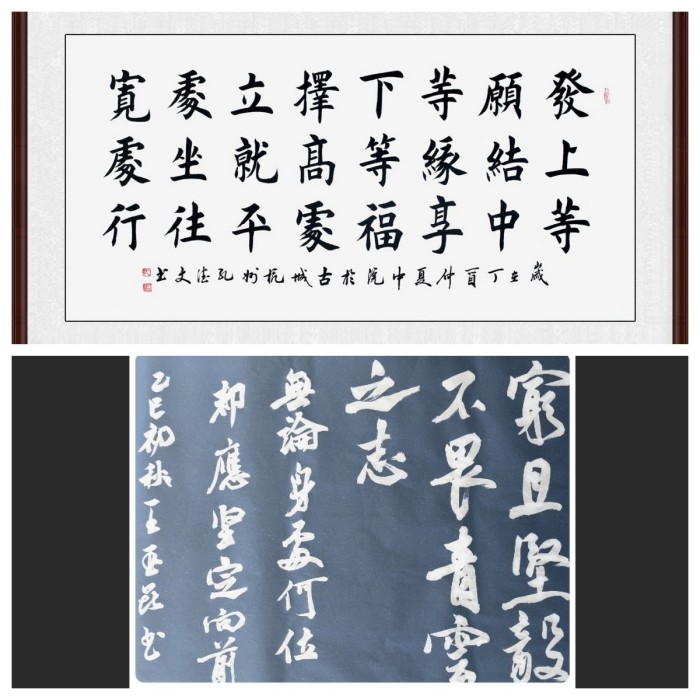 發上等
願結中
等緣享
下等福
擇髙處
立就平
處坐往
寬處行
歲在丁酉仲夏中浣於古城杭州孔文书
窮且堅毅
不畏青雲
之志
無論身處何位
却應坚定向前
乙巳初秋王书